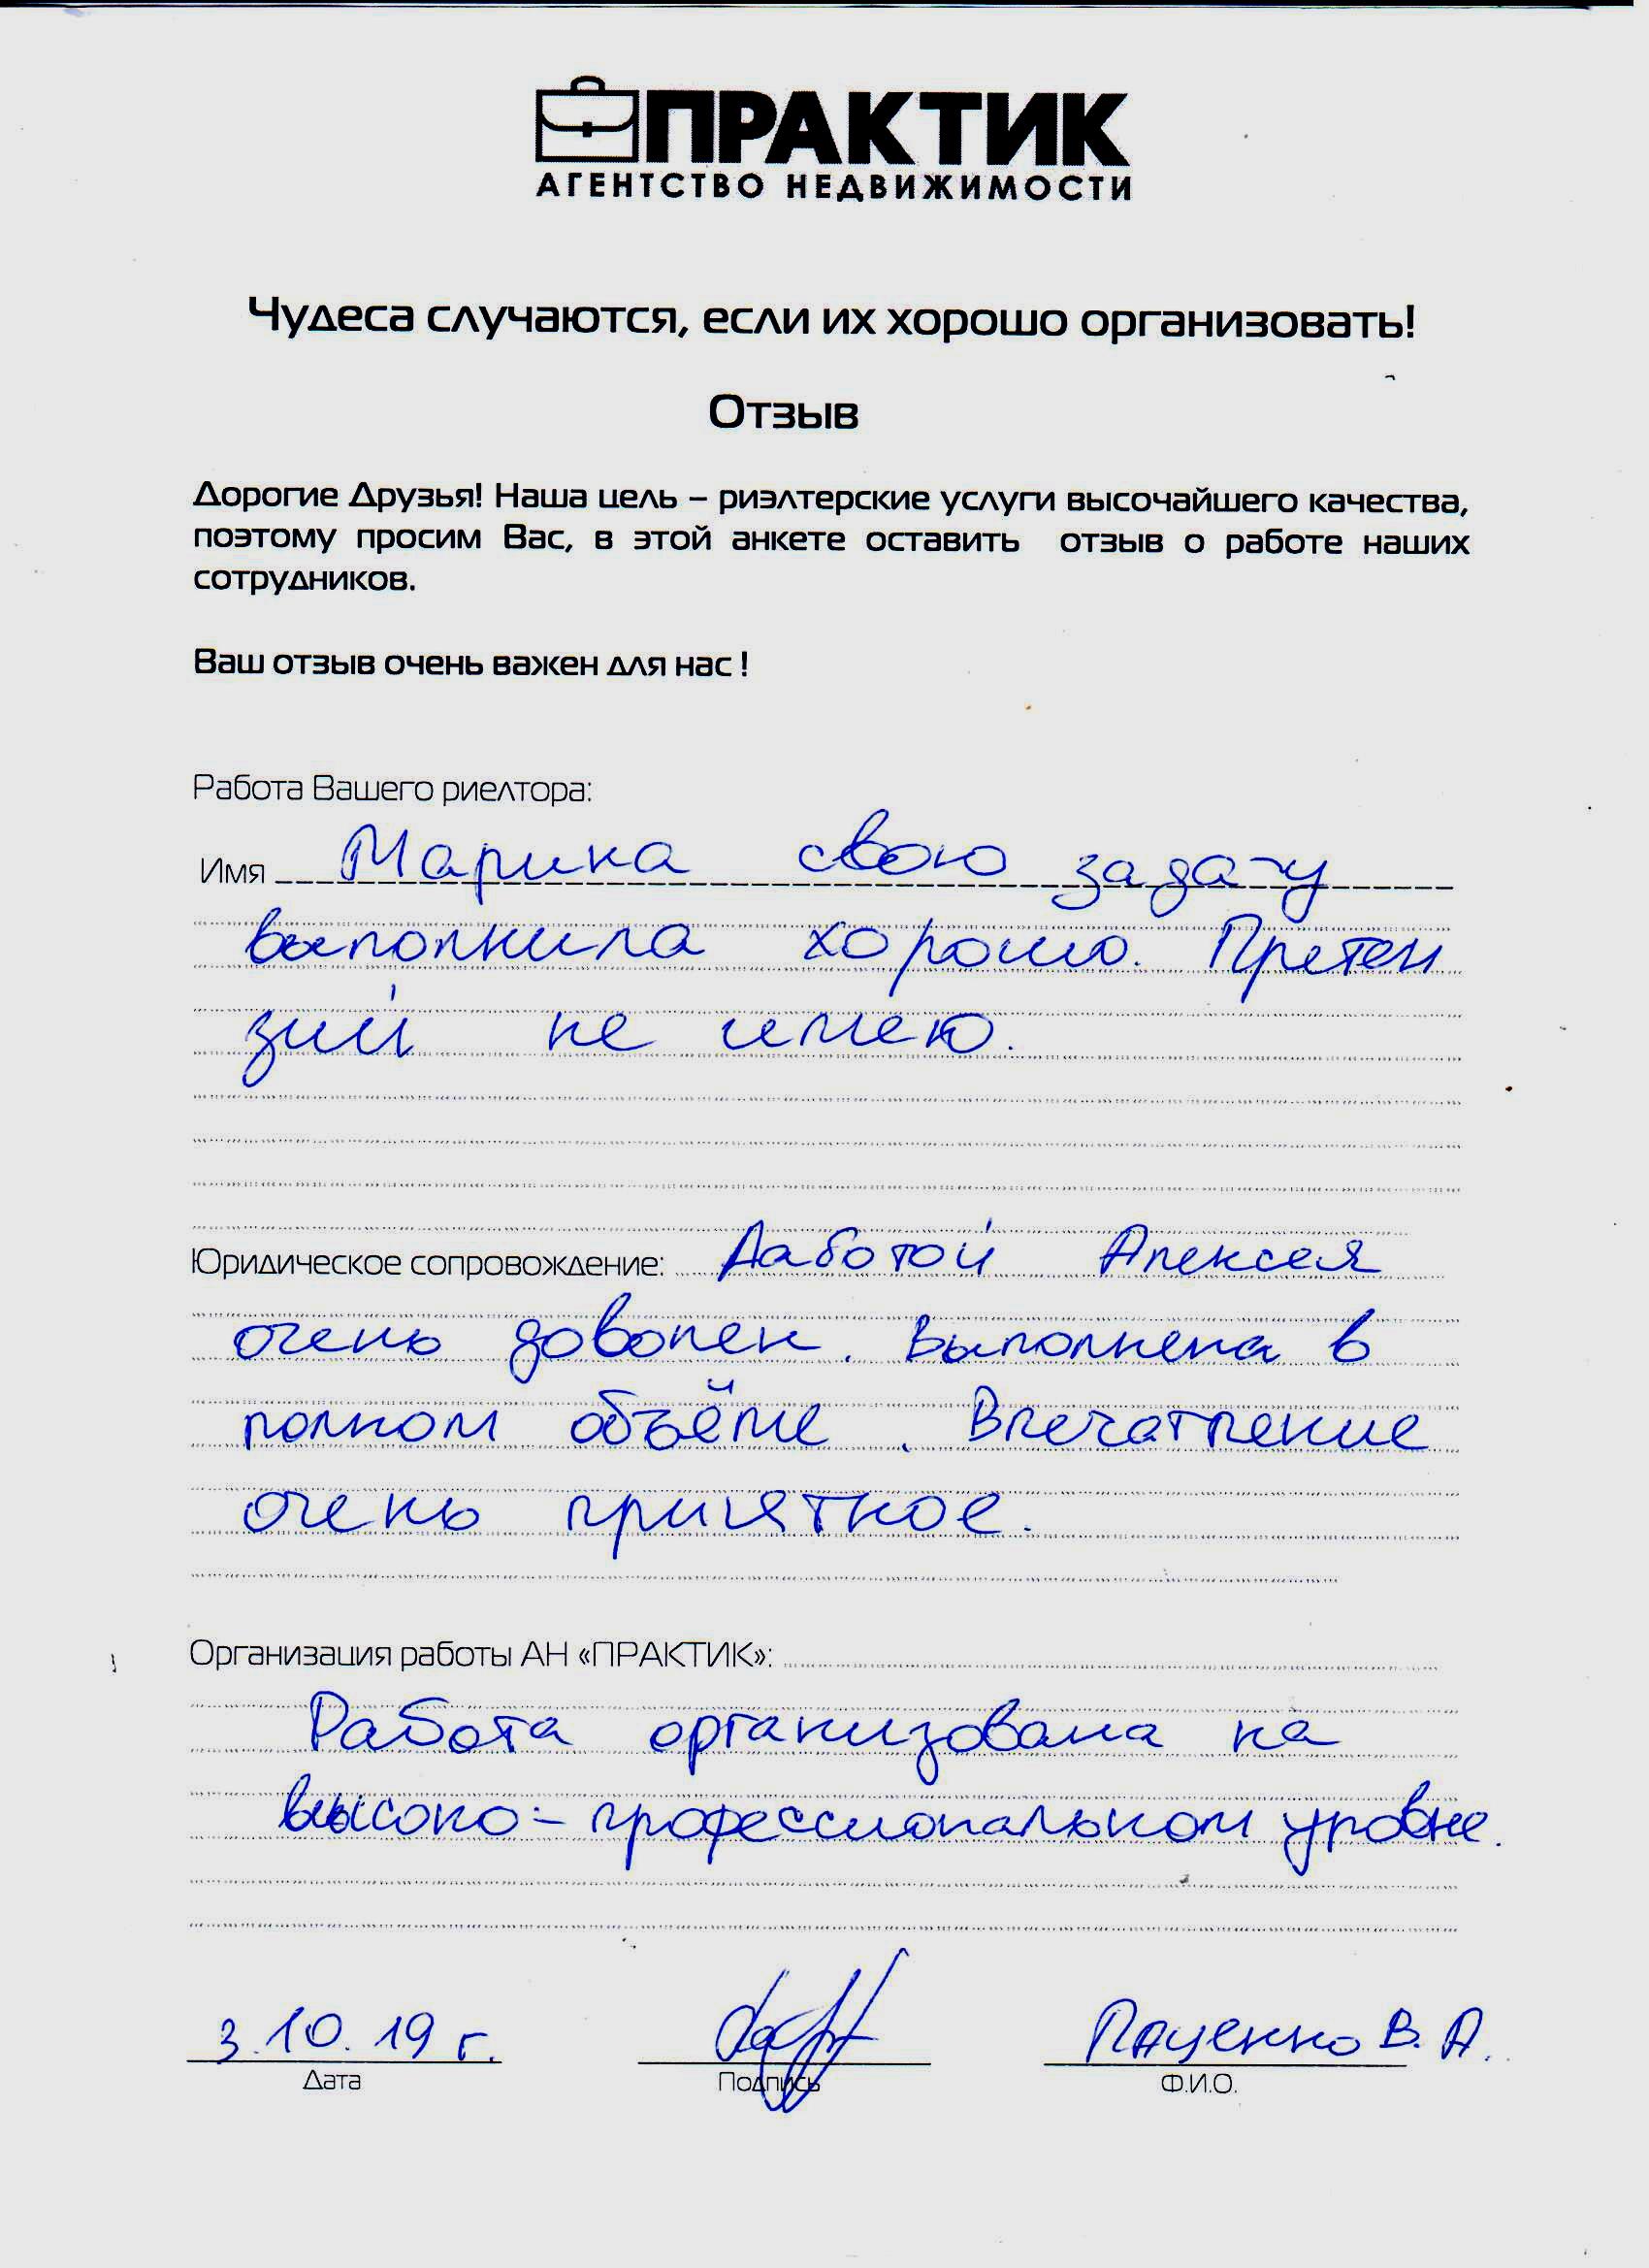 ПРАКТИК
АГЕНТСТВО НЕДВИЖИМОСТИ
Чудеса случаются, если их хорошо организовать!
Отзыв
Дорогие Друзья! Наша цель – риэлтерские услуги высочайшего качества,
поэтому просим Вас, в этой анкете оставить отзыв о работе наших
сотрудников.
Ваш отзыв очень важен для нас !
Работа Вашего риелтора:
Имя Марина свою задачу
выполнила хорошо. Претен
зий не имею.
Юридическое сопровождение: Работой Алексея
очень доволен. Выполнена в
полном объёме. Впечатление
очень приятное.
Организация работы АН «ПРАКТИК»:
Работа организована на
высоко-профессиональном уровне.
3.10.19 г. Паценко В. А.
Дата Подпись Ф.И.О.